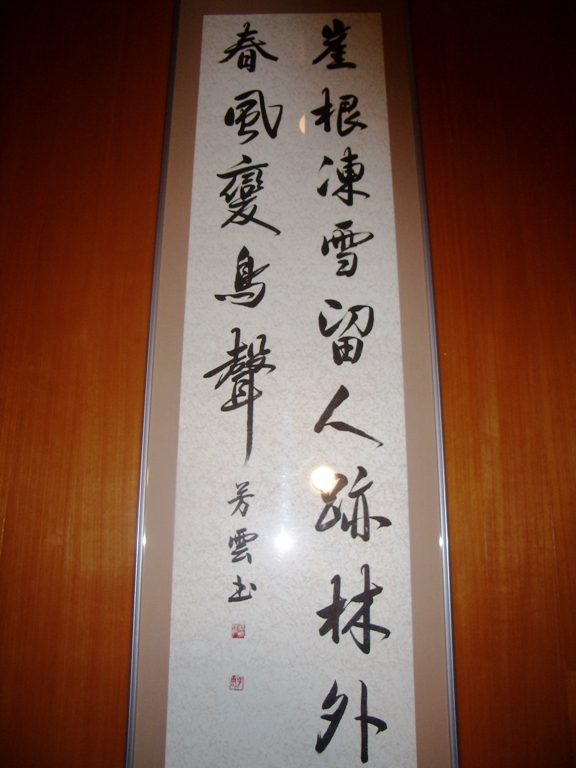 崖根凍雪留人跡林外
春風變鳥聲
芳雲书